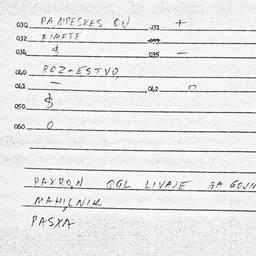 030 PA,MPESKES QU 031 +
032 FIMETE 033
034 $ 035 —
040 ROZ+ESTVO,
041 — 042 O
050 $
060 O
PAXRO,N QGL LIVAJE GA GOJN
MAHI,LNIK
PASXA